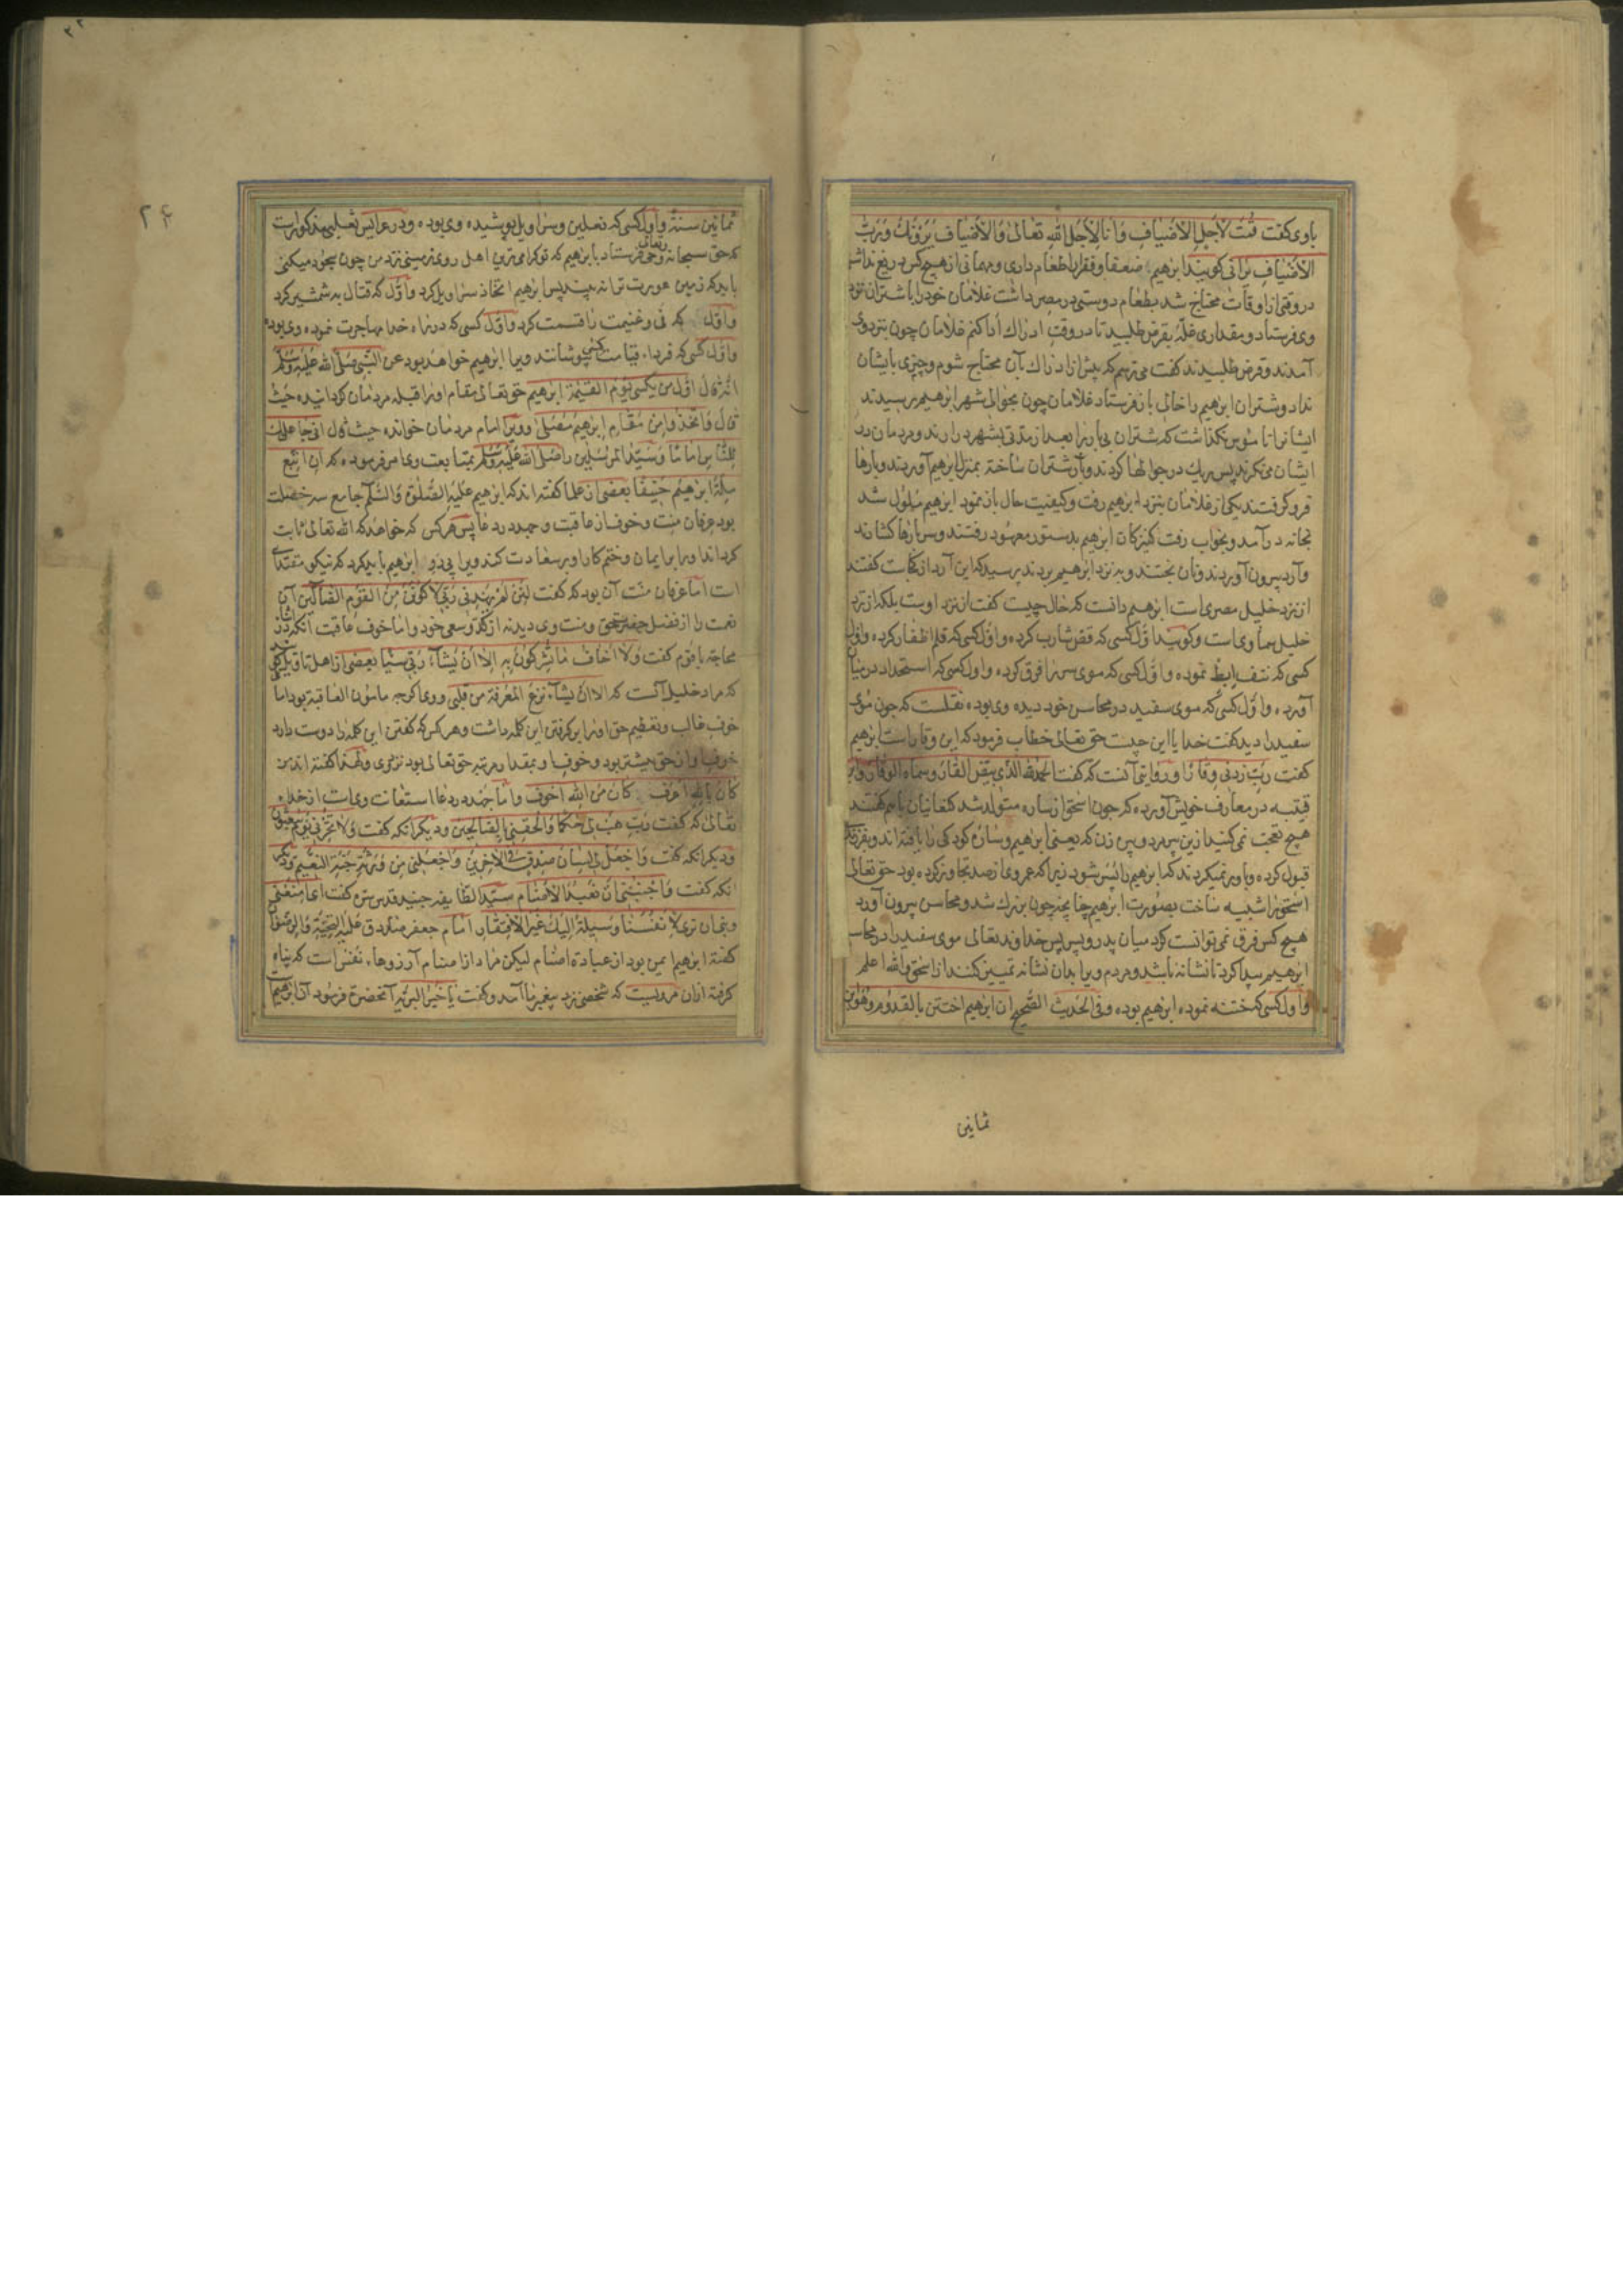 باوی گفت قُمتَ لأجل الأضیافِ وَأنا لِأجل الله تعالی وَالأضیاف یَرَوْنَكَ وَرَبُّ
الأضیافِ یَرانی گویند ابرهیم ضعفا و فقرا را طعام دادی و مهمانی از هیچ کس دریغ نداشتی
در وقتی از اوقات محتاج شد بطعام دوستی در مصر داشت غلامان خود را با شتران نزد
وی فرستاد و مقداری غلّه بقرض طلبید تا در وقت ادراك ادا کنم غلامان چون بنزد وی
آمدند و قرض طلبیدند گفت می ترسم که پیش از ادراك بآن محتاج شوم و چیزی بایشان
نداد و شتران ابرهیم را خالی باز فرستاد غلامان چون بحوالی شهر ابرهیم رسیدند
ایشانرا ناموس نگذاشت که شتران بی بار را بعد از مدتی بشهر درارند و مردمان در
ایشان می نگرند پس ریك در جوالها کردند و بار شتران ساخته بمنزل ابرهیم آوردند و بارها
فرو گرفتند یکی از غلامان بنزد ابرهیم رفت و کیفیت حال باز نمود ابرهیم ملول شد
بخانه درآمد و بخواب رفت کنیزکان ابرهیم بدستور معهود رفتند و سر بارها کشادند
و آرد بیرون آوردند و نان پختند و به نزد ابرهیم بردند پرسید که این آرد از کجاست گفتند
از نزد خلیل مصری است ابرهیم دانست که حال چیست گفت از نزد او نیست بلکه از نزد
خلیل سماوی است و گویند اوّل کسی که قص شارب کرده و اوّل کسی که قلم اظفار کرده و اول
کسی که نتف ابط نموده و اوّل کسی که موی سر را فرق کرده و اول کسی که استحداد در میان
آورده و اوّل کسی که موی سفید در محاسن خود دیده وی بوده نقلست که چون موی
سفید را دید گفت خدایا این چیست حق تعالی خطاب فرمود که این وقار است ابرهیم
گفت ربّ زدنی وقارا و روایتی آنست که گفت الحمد لله الذی بیّض القار و سماه الوقار و ابن
قتیبه در معارف خویش آورده که چون اسحق از ساره متولد شد کنعانیان باهم گفتند
هیچ تعجب نمی کنید ازین پیر مرد و پیر زن که یعنی ابرهیم و ساره کودکی را یافته اند و بفرزندی
قبول کرده و باور نمیکردند که ابرهیم را پسر شود زیرا که عمر وی از صد تجاوز کرده بود حق تعالی
اسحق را شبیه ساخت بصورت ابرهیم چنانچه چون بزرك شد و محاسن بیرون آورد
هیچ کس فرق نمی توانست کرد میان پدر و پسر پس خداوند تعالی موی سفید را در محاسن
ابرهیم پیدا کرد تا نشانه باشد و مردم ویرا بدان نشانه تمییز کنند از اسحق والله اعلم
و اول کسی که ختنه نموده ابرهیم بوده و فی الحدیث الصّحیح ان ابرهیم اختتن بالقدوم وهو ابن
ثمانین
۲۴
ثمانین سنة و اول کسی که نعلین و سراویل پوشیده وی بوده و در عرایس ثعلبی مذکور است
که حق سبحانه وتعالی وحی فرستاد بابرهیم که تو کرامی ترین اهل روی زمینی نزد من چون سجود میکنی
باید که زمین عورت ترا نه بیند پس ابرهیم اتخاذ سراویل کرد و اوّل که قتال به شمشیر کرد
و اوّل که فی و غنیمت را قسمت کرد و اوّل کسی که در راه خدا مهاجرت نموده وی بوده
و اوّل کسی که فرداء قیامت کسی پوشانند ویرا ابرهیم خواهد بود عن النّبی صلی الله علیه وسلم
انه قال اوّل من یکسی یوم القیمة ابرهیم حق تعالی مقام او را قبله مردمان کردانیده حیث
قال وَاتّخذوا مِن مَقامِ ابرهیم مُصَلّی و ویرا امام مردمان خوانده حیث قال انی جاعلك
للنّاس اماما وَ سیّد المرسلین را صلی الله علیه وسلم بمتابعت وی امر فرموده که ان اتبع
ملّة ابرهیم حنیفا بعضی از علما گفته اند که ابرهیم علیه الصّلوة والسّلم جامع سه خصلت
بود عرفان منت و خوف از عاقبت و جهد در دعا پس هر کس که خواهد که الله تعالی ثابت
کرداند او را بر ایمان و ختم کار او بر سعادت کند ویرا پی روِ ابرهیم باید کرد که نیکو مقتدای
است اما عرفان منّت آن بود که گفت لَئِن لم یهدنی رَبّی لاکوننّ مِن القوم الضّالین آن
نعمت را از فضل حضرت حق و منت وی دید نه از کدّ و سعی خود و اما خوف عاقبت آنکه در اثنا
محاجّه با قوم گفت وَلا اخاف ما تُشرِکون بِه الا ان یشآء رَبّی شیئا بعضی از اهل تاویل گفته اند
که مراد خلیل آنست که الا ان یشآء نزع المعرفة من قلبی و وی اگرچه مامون العاقبة بود اما
خوف غالب و تعظیم حق او را بر گفتن این کلمه داشت و هر کس که گفتن این کلمه را دوست دارد
خوف او از حق بیشتر بود و خوف او بمقدار مرتبه حق تعالی بود نزد وی و لهذا گفته اند من
کان بالله اعرف کان من الله اخوف و اما جهد در دعا استغاثت وی است از خدای
تعالی که گفت رَبّ هَب لی حکما وَالحقنی بالصّالحین و دیکر انکه گفت وَلا تُخزنی یوم یبعثون
و دیکر انکه گفت وَاجعَل لی لسان صدق فی الآخرین وَاجعلنی مِن وَرثة جنّة النّعیم و دیکر
انکه گفت وَاجنُبنی ان نعبد الأصنام سیّد الطّایفه جنید قدس سره گفت ای امنعنی
و بنیّ ان نری لا نفسنا وسیلة الیك غیر الافتقار امام جعفر صادق علیه التحیّة والرضوان
گفته ابرهیم ایمن بود از عبادة اصنام لیکن مراد از اصنام آرزوهاء نفس است که پناه
کرفته ازان مرویست که شخصی نزد پیغمبر ما آمد و گفت یا خیر البریّه آنحضرة فرمود آن ابرهیم